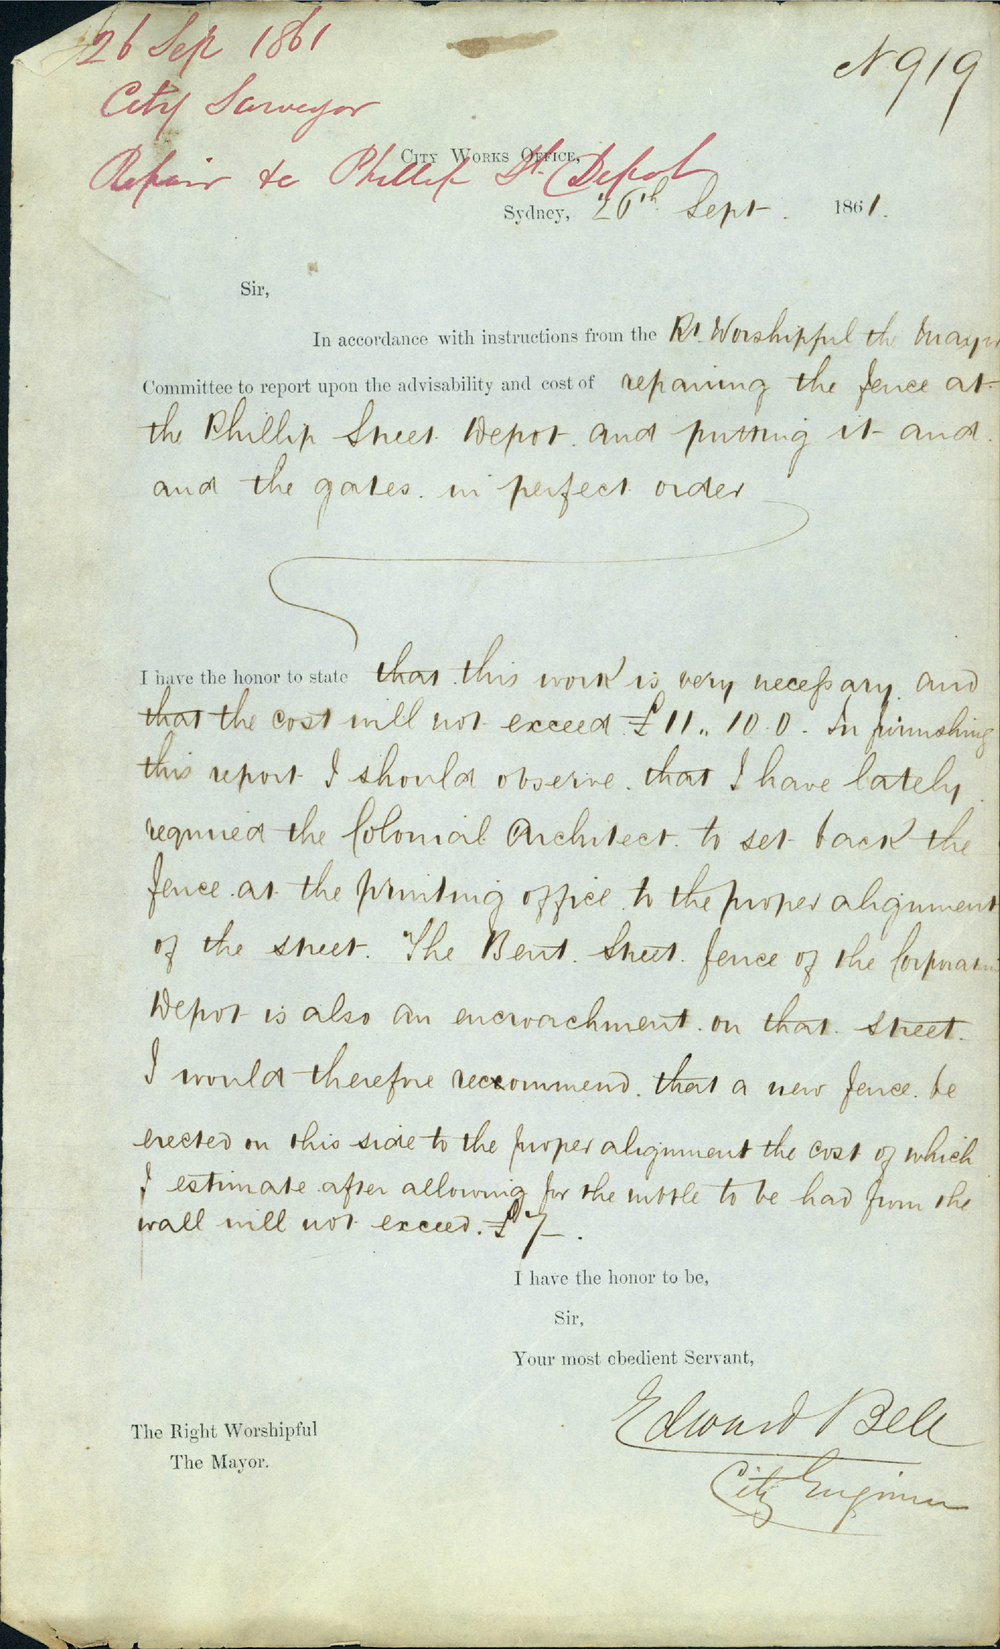 26 Sep 1861
No 919
City Surveyor
City Works Office,
Repair to Phillip St Depot
Sydney, 26th Sept. 1861.
Sir,
In accordance with instructions from the Rt. Worshipful the Mayor
Committee to report upon the advisability and cost of repairing the fence at
the Phillip Street Depot. and putting it and
and the gates. in perfect order
I have the honor to state that this work is very necessary. and
that the cost will not exceed £11.. 10. 0. In furnishing
this report I should observe. that I have lately
required the Colonial Architect. to set back the
fence at the printing office to the proper alignment
of the street. The Bent. Street. fence of the Corporation
Depot is also an encroachment. on that. street.
I would therefore reccommend. that a new fence. be
erected on this side to the proper alignment the cost of which
I estimate after allowing for the rubble to be had from the
wall will not exceed. £7-.
I have the honor to be,
Sir,
Your most obedient Servant,
Edward Bell
City Engineer
The Right Worshipful
The Mayor.